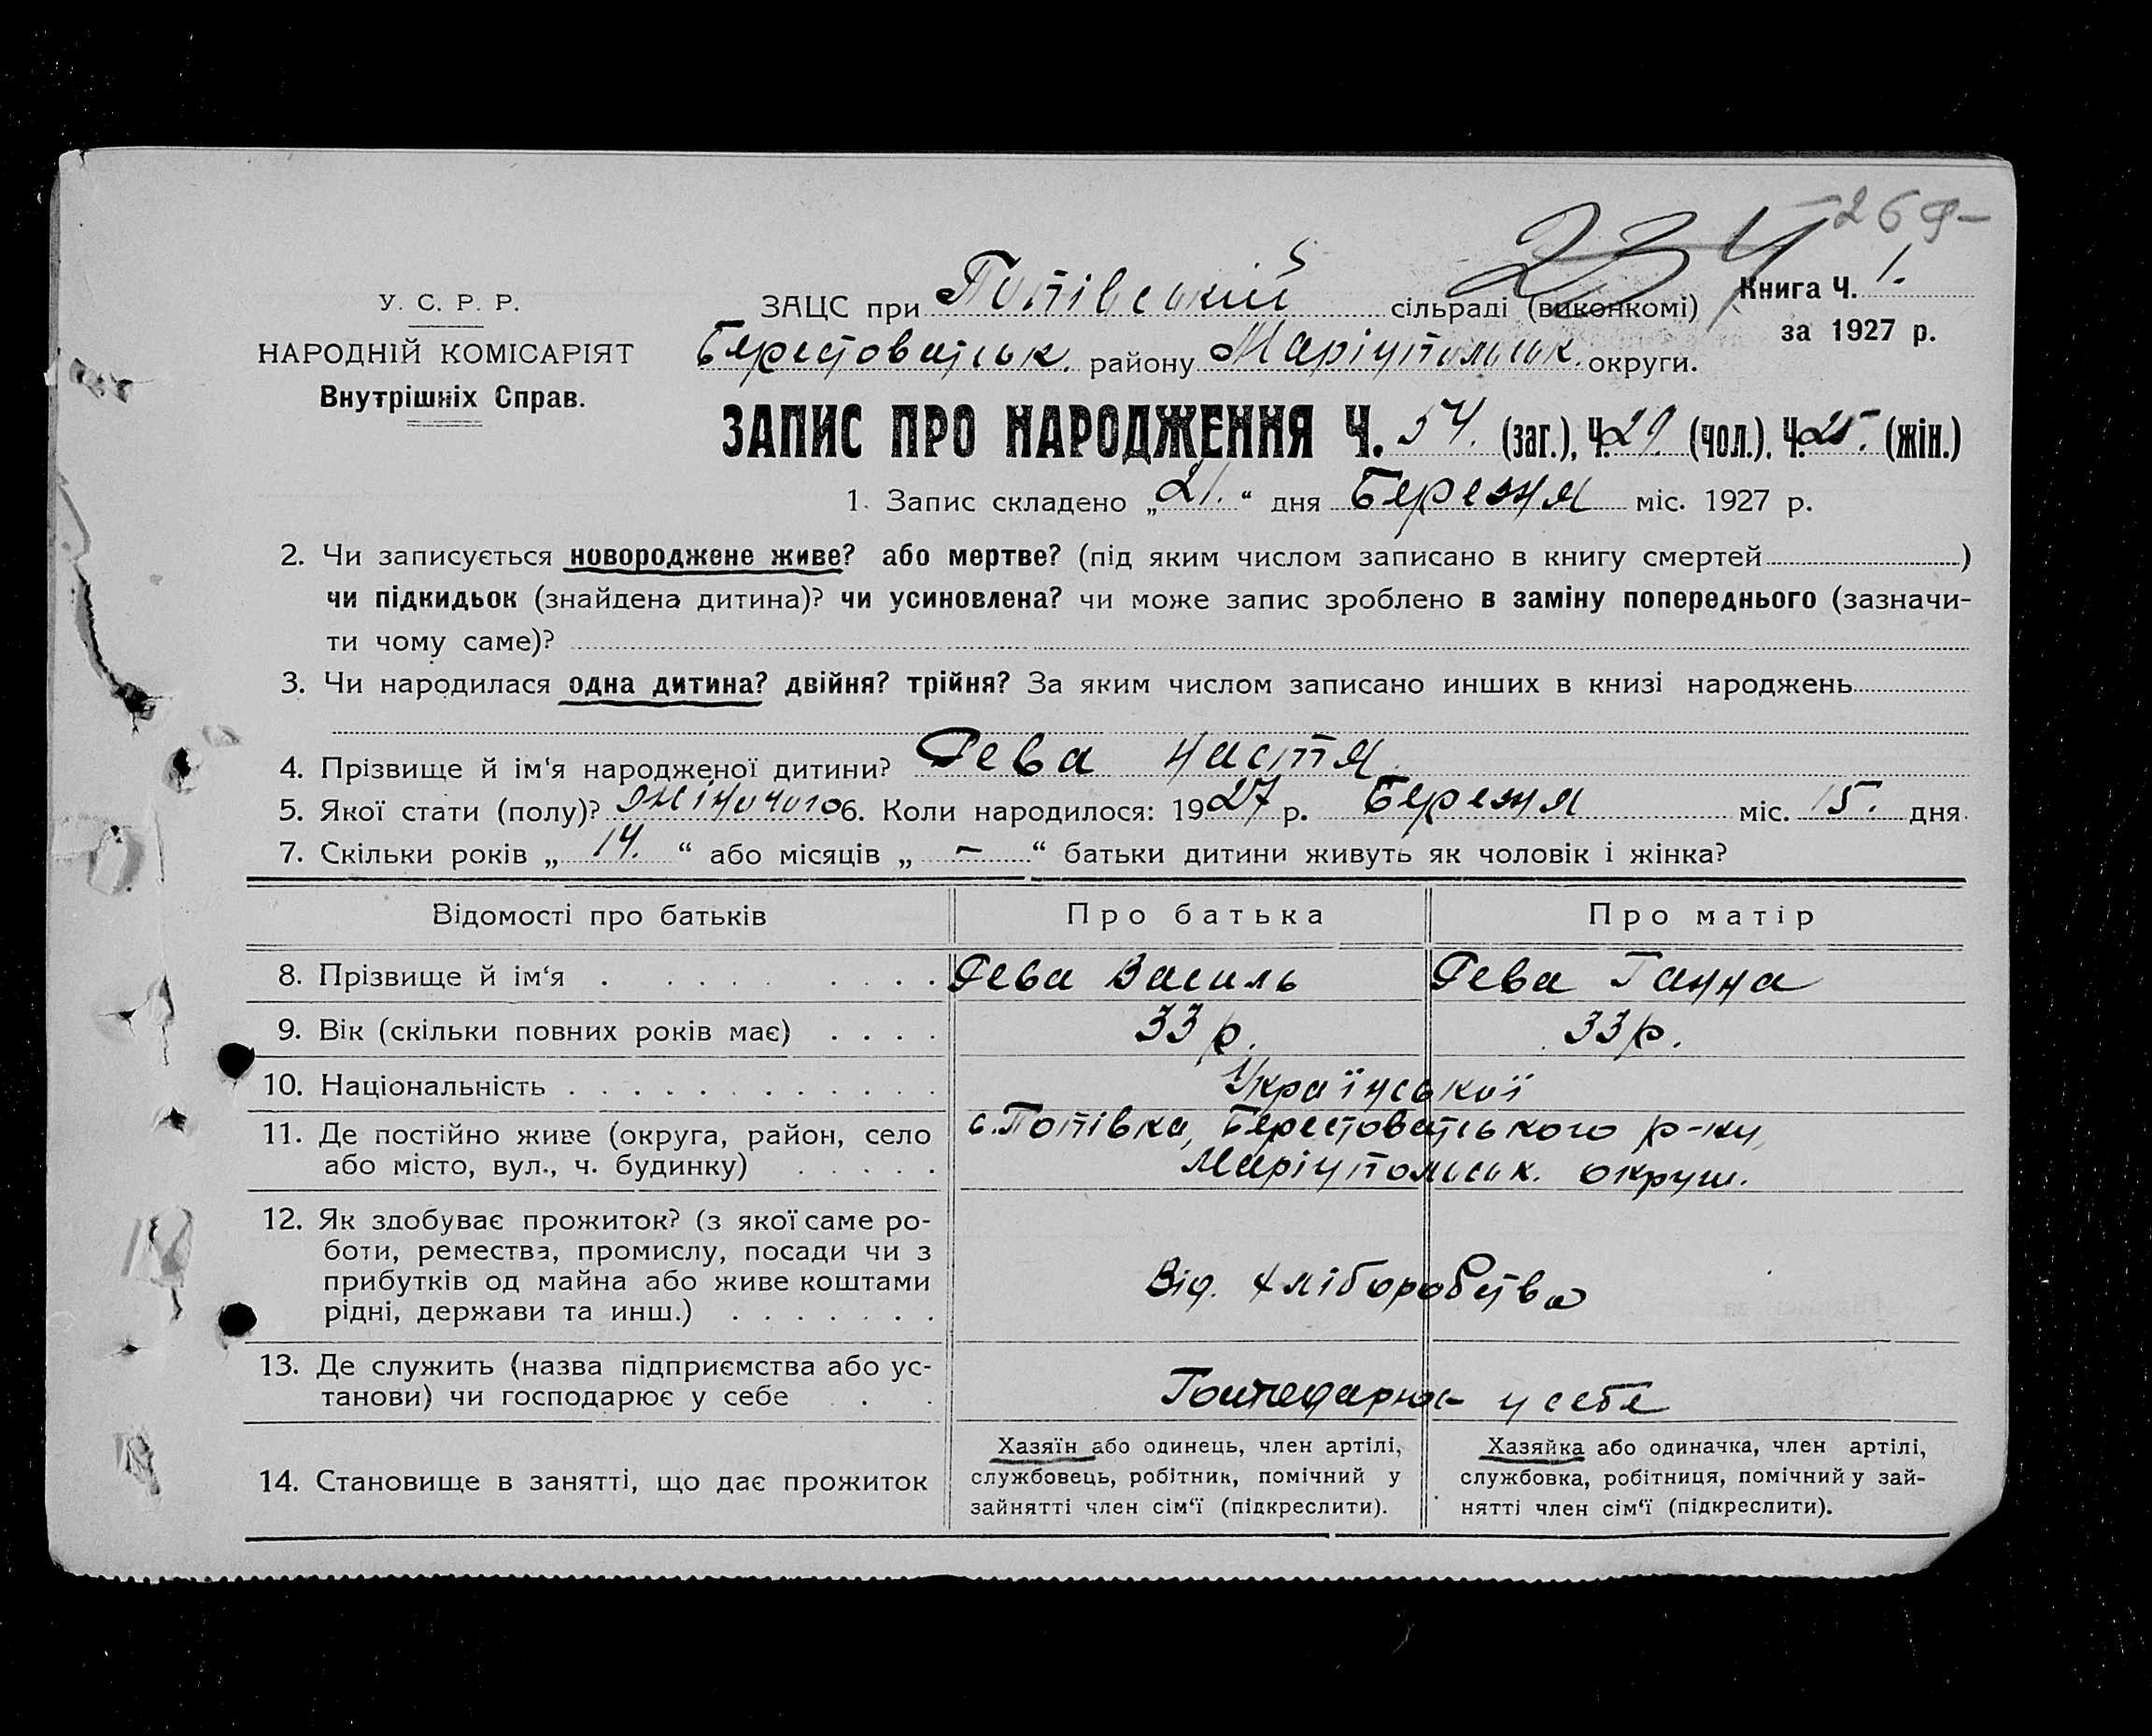 269-
234
У. С. Р. Р.
НАРОДНІЙ КОМІСАРІЯТ
Внутрішніх Справ.
ЗАЦС при Попівській сільраді (виконкомі)
Книга Ч. 1.
за 1927 р.
Берестоватськ. району Маріупольськ. округи.
ЗАПИС ПРО НАРОДЖЕННЯ Ч. 54. (заг.), Ч. 29. (чол.). Ч. 25. (жін.)
1. Запис складено „21.“ дня Березня міс. 1927 р.
2. Чи записується новороджене живе? або мертве? (під яким числом записано в книгу смертей )
чи підкидьок (знайдена дитина)? чи усиновлена? чи може запис зроблено в заміну попереднього (зазначи-
ти чому саме)?
3. Чи народилася одна дитина? двійня? трійня? За яким числом записано инших в книзі народжень
4. Прізвище й ім‘я народженої дитини? Рева Настя
5. Якої стати (полу)? жіночого 6. Коли народилося: 1927 р. Березня міс. 15. дня
7. Скільки років „ 14. “ або місяців „ — “ батьки дитини живуть як чоловік і жінка?
Відомості про батьків Про батька Про матір
8. Прізвище й ім‘я . . . . . . . . Рева Василь Рева Ганна
9. Вік (скільки повних років має) . . . . 33 р. 33 р.
10. Національність . . . . . . . . . . . . Української
11. Де постійно живе (округа, район, село
або місто, вул., ч. будинку) . . . . .
с. Попівка, Берестоватського р-ну,
Маріупольськ. округи.
12. Як здобуває прожиток? (з якої саме ро-
боти, ремества, промислу, посади чи з
прибутків од майна або живе коштами
рідні, держави та инш.) . . . . . . .
Від. хліборобства
13. Де служить (назва підприємства або ус-
танови) чи господарює у себе . .
Господарює у себе
14. Становище в занятті, що дає прожиток
Хазяїн або одинець, член артілі,
службовець, робітник, помічний у
зайнятті член сім‘ї (підкреслити).
Хазяйка або одиначка, член артілі,
службовка, робітниця, помічний у зай-
нятті член сім‘ї (підкреслити).